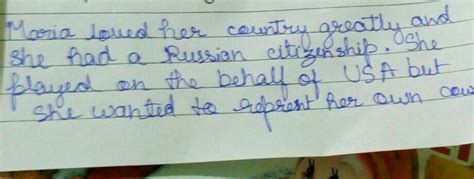 Maria loved her country greatly and
she had a Russian citizenship. She
played on the behalf of USA but
she wanted to represt her own cou